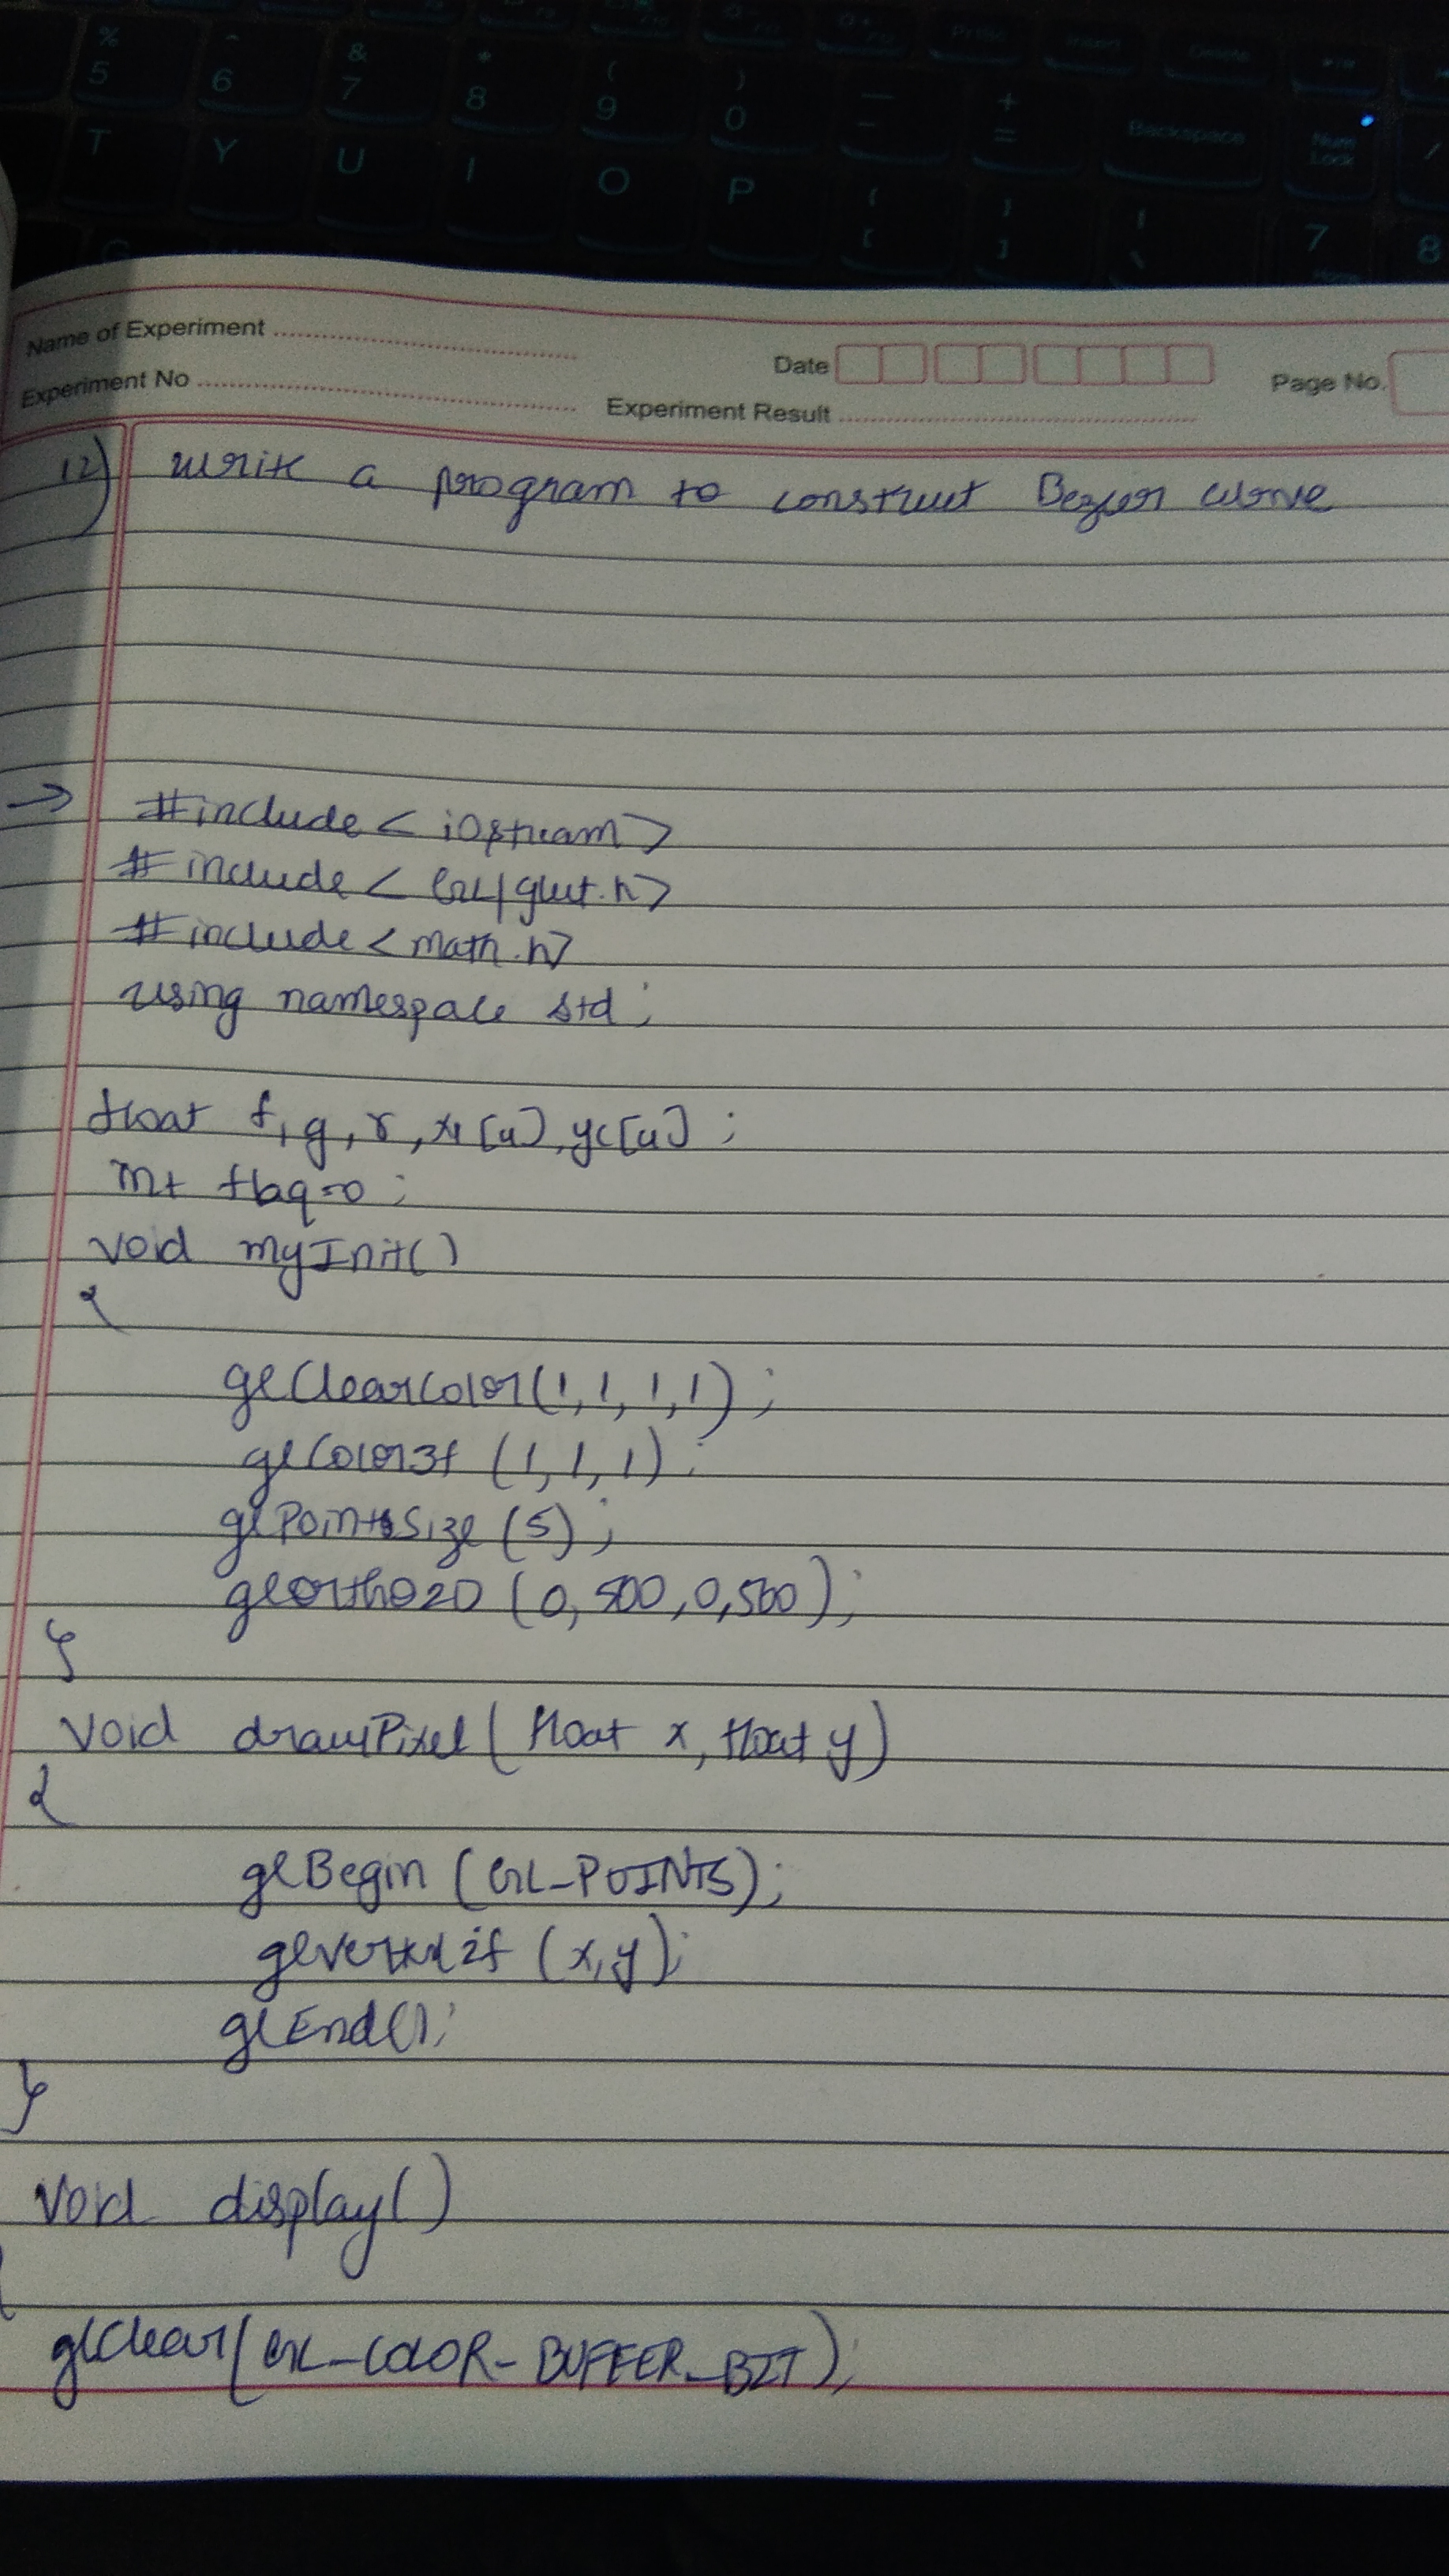 % 5 ^ 6 & 7 * 8 ( 9 ) 0 _ - + = Backspace Num Lock /
T Y U I O P { [ } ] 7 8
Name of Experiment
Date
Page No.
Experiment No
Experiment Result
12) Write a program to construct Bezier curve
→ #include < iostream>
# include < GL/glut.h>
# include < math.h>
using namespace std;
float f, g, r, x1[4], yc[4];
int flag=0;
void myInit()
{
glClearColor(1,1,1,1);
glColor3f (1,1,1);
glPointsSize (5);
glortho2D (0,500,0,500);
}
void drawPixel( float x, float y)
{
glBegin (GL_POINTS);
glVertex2f (x,y);
glEnd();
}
void display()
{
glClear(GL_COLOR_BUFFER_BIT);